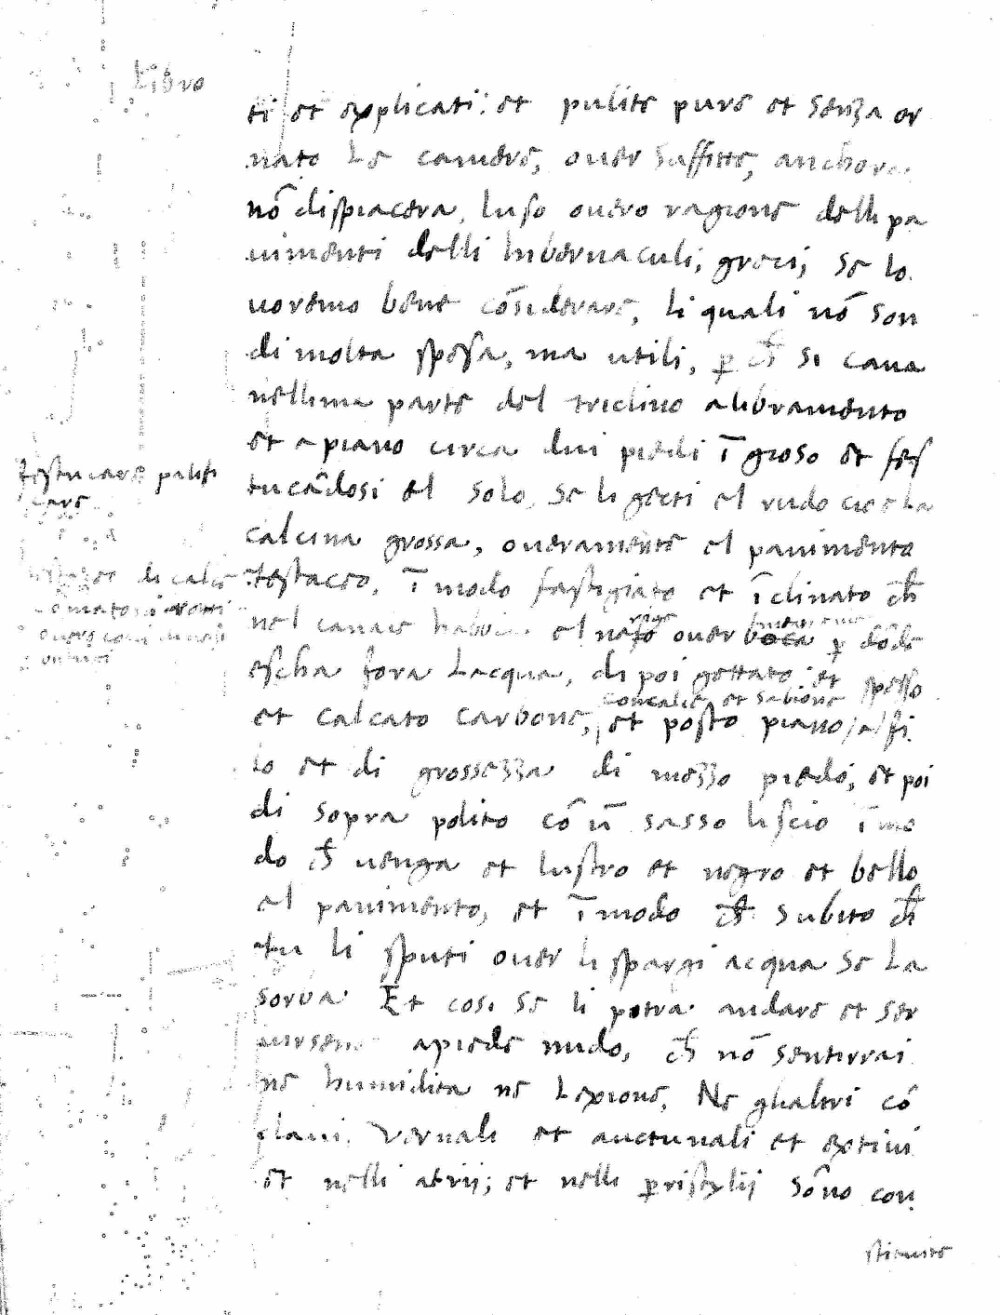 Libro
ti et explicati: et pulite pure et senza or
nato Le camere, ouer suffitte, anchora
nō dispiacera, luso ouero ragione delli pa
uimenti delli hibernaculi, greci, se lo
uoremo bene cōsiderare, li quali nō son
di molta spesa, ma utili, ꝑ ch̄ si caua
nellima parte del triclino alibramento
et apiano circa dui piedi ī groso et fes
tucādosi el solo, se li getti el rudo cioe la
calcina grossa, oueramente el pauimento
testaceo, ī modo fastigiato et īclinato ch̄
nel canale habbia el naso ouer boca ꝑ dōde
escha fora Lacqua, di poi gettato et spesso
con calce et sabione
et calcato carbone, et posto piano alfi
lo et di grossezza di mezzo piede, et poi
di sopra polito cō ū sasso liscio ī mo
do ch̄ uenga et lustro et negro et bello
el pauimento, et ī modo ch̄ subito ch̄
tu li sputi ouer li spargi acqua se la
sorba Et cosi se li potra andare et ser
uirsene apiede nudo, ch̄ nō sentirrai
ne humidita ne Lexione, Ne ghaltri cō
claui. vernali et auctunali et extiui
et nelli atrij; et nelli ꝑistylij sōno con
stituite
festucare paliti
care
testaceo di calce